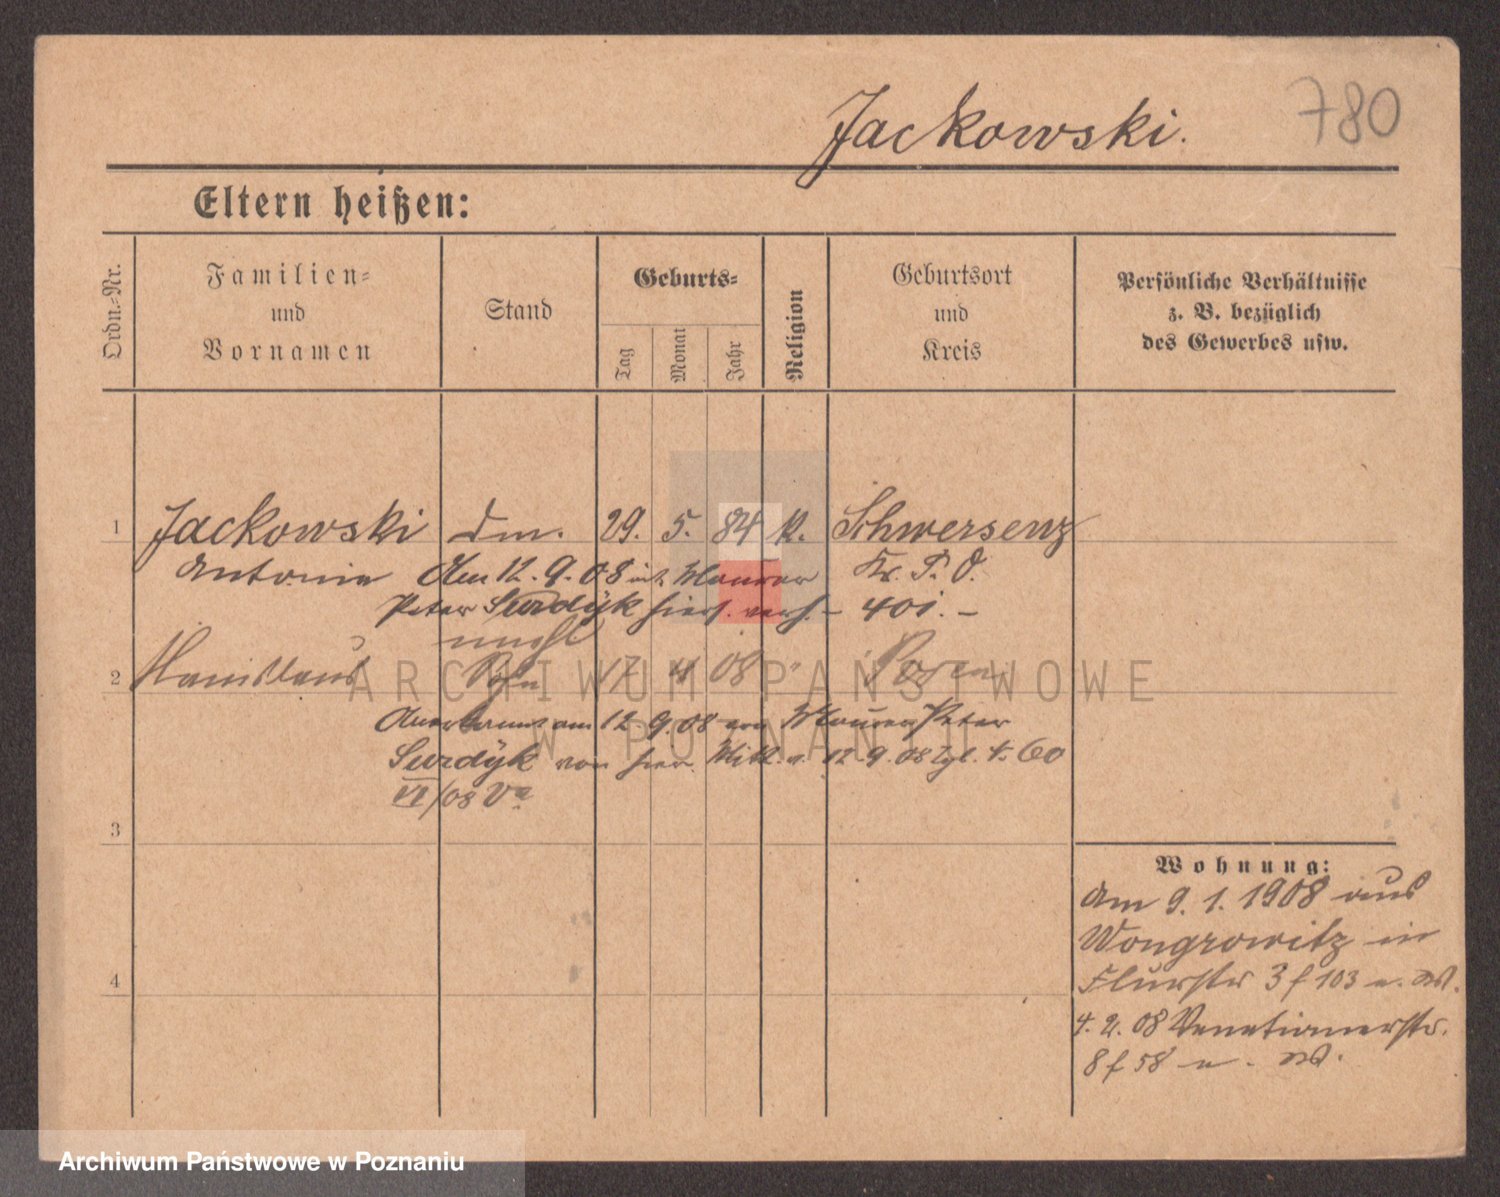 780
Jackowski.
Eltern heißen:
Ordn.-Nr.
Familien-
und
Vornamen
Stand
Geburts-
Tag
Monat
Jahr
Religion
Geburtsort
und
Kreis
Persönliche Verhältnisse
z. B. bezüglich
des Gewerbes usw.
1 Jackowski Dm. 29. 5. 84 k. Schwersenz
Antonie Am 12. 9. 08 mit Maurer Kr. P. O.
Peter Surdyk hier verh. – 401. –
unehl
2 Stanislaus Sohn 17 4 08 " Posen
Anerkannt am 12. 9. 08 von Maurer Peter
Surdyk von hier. Mitt. v. 12. 9. 08
VI/08
3
4
Wohnung:
Am 9. 1. 1908 aus
Wongrowitz in
Flurstr 3 f 103 a. W.
4. 2. 08 Venetianerstr.
8 f 58
ARCHIWUM PAŃSTWOWE
W POZNANIU
Archiwum Państwowe w Poznaniu